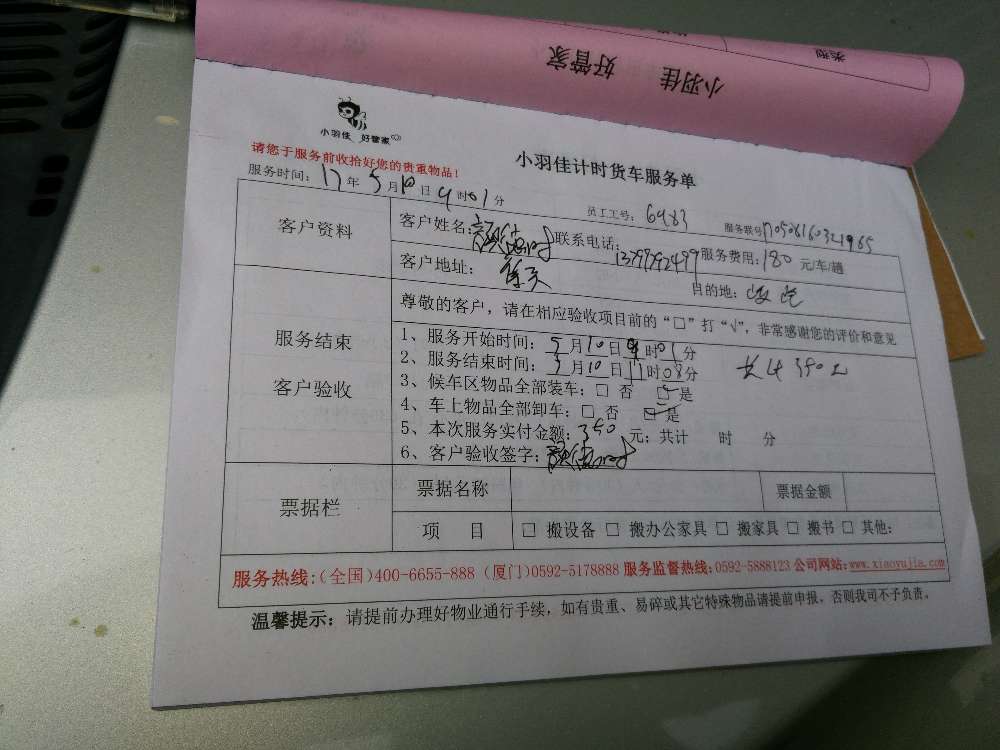 类别
小羽佳 好管家
小羽佳 好管家
请您于服务前收拾好您的贵重物品!
小羽佳计时货车服务单
服务时间: 17年5月10日9时01分 员工工号: 6983 服务联号
客户资料 客户姓名: 联系电话: 服务费用: 180 元/车/趟
客户地址: 目的地:
尊敬的客户,请在相应验收项目前的“□”打“√”,非常感谢您的评价和意见
服务结束
客户验收
1、服务开始时间: 5月10日9时01分
2、服务结束时间: 5月10日11时08分
3、候车区物品全部装车: □ 否 ☑是
4、车上物品全部卸车: □ 否 ☑是
5、本次服务实付金额: 350 元; 共计 时 分
6、客户验收签字:
票据栏 票据名称 票据金额
项 目 □ 搬设备 □ 搬办公家具 □ 搬家具 □ 搬书 □ 其他:
服务热线:(全国)400-6655-888 (厦门)0592-5178888 服务监督热线:0592-5888123 公司网站:www.xiaoyujia.com
温馨提示: 请提前办理好物业通行手续,如有贵重、易碎或其它特殊物品请提前申报、否则我司不予负责。